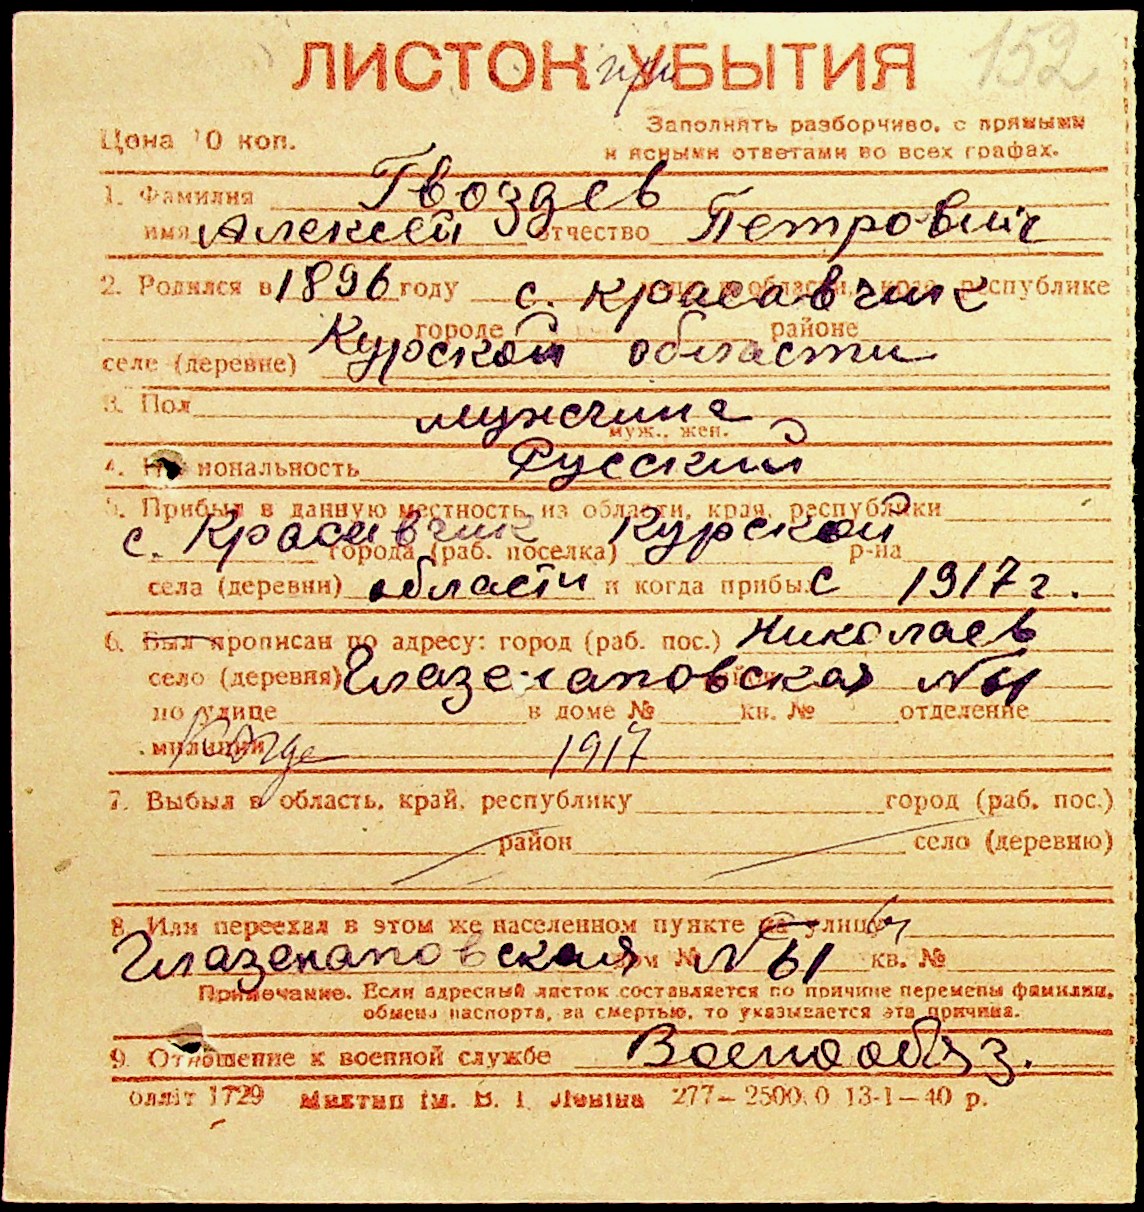 152
ЛИСТОК при УБЫТИЯ
Цена 10 коп.
Заполнять разборчиво, с прямыми
и ясными ответами во всех графах.
1. Фамилия Гвоздев
имя Алексей отчество Петрович
2. Родился в 1896 году с. Красавчик республике
городе районе
селе (деревне) Курской области
3. Пол мужчина
муж., жен.
4. Национальность Русский
5. Прибыл в данную местность из области, края, республики
с. Красавчик Курской
города (раб. поселка) р-на
села (деревни) области и когда прибыл с 1917 г.
6. Был прописан по адресу: город (раб. пос.) Николаев
село (деревня) Глазенаповская № 61
по улице в доме № кв. № отделение
милиции Когда 1917
7. Выбыл в область, край, республику город (раб. пос.)
район село (деревню)
8. Или переехал в этом же населенном пункте на улицу
Глазенаповская дом № № 61 кв. №
Примечание. Если адресный листок составляется по причине перемены фамилии,
обмена паспорта, за смертью, то указывается эта причина.
9. Отношение к военной службе Военнообяз.
олліт 1729 Миктип ім. В. І. Леніна 277—2500.0 13-1—40 р.